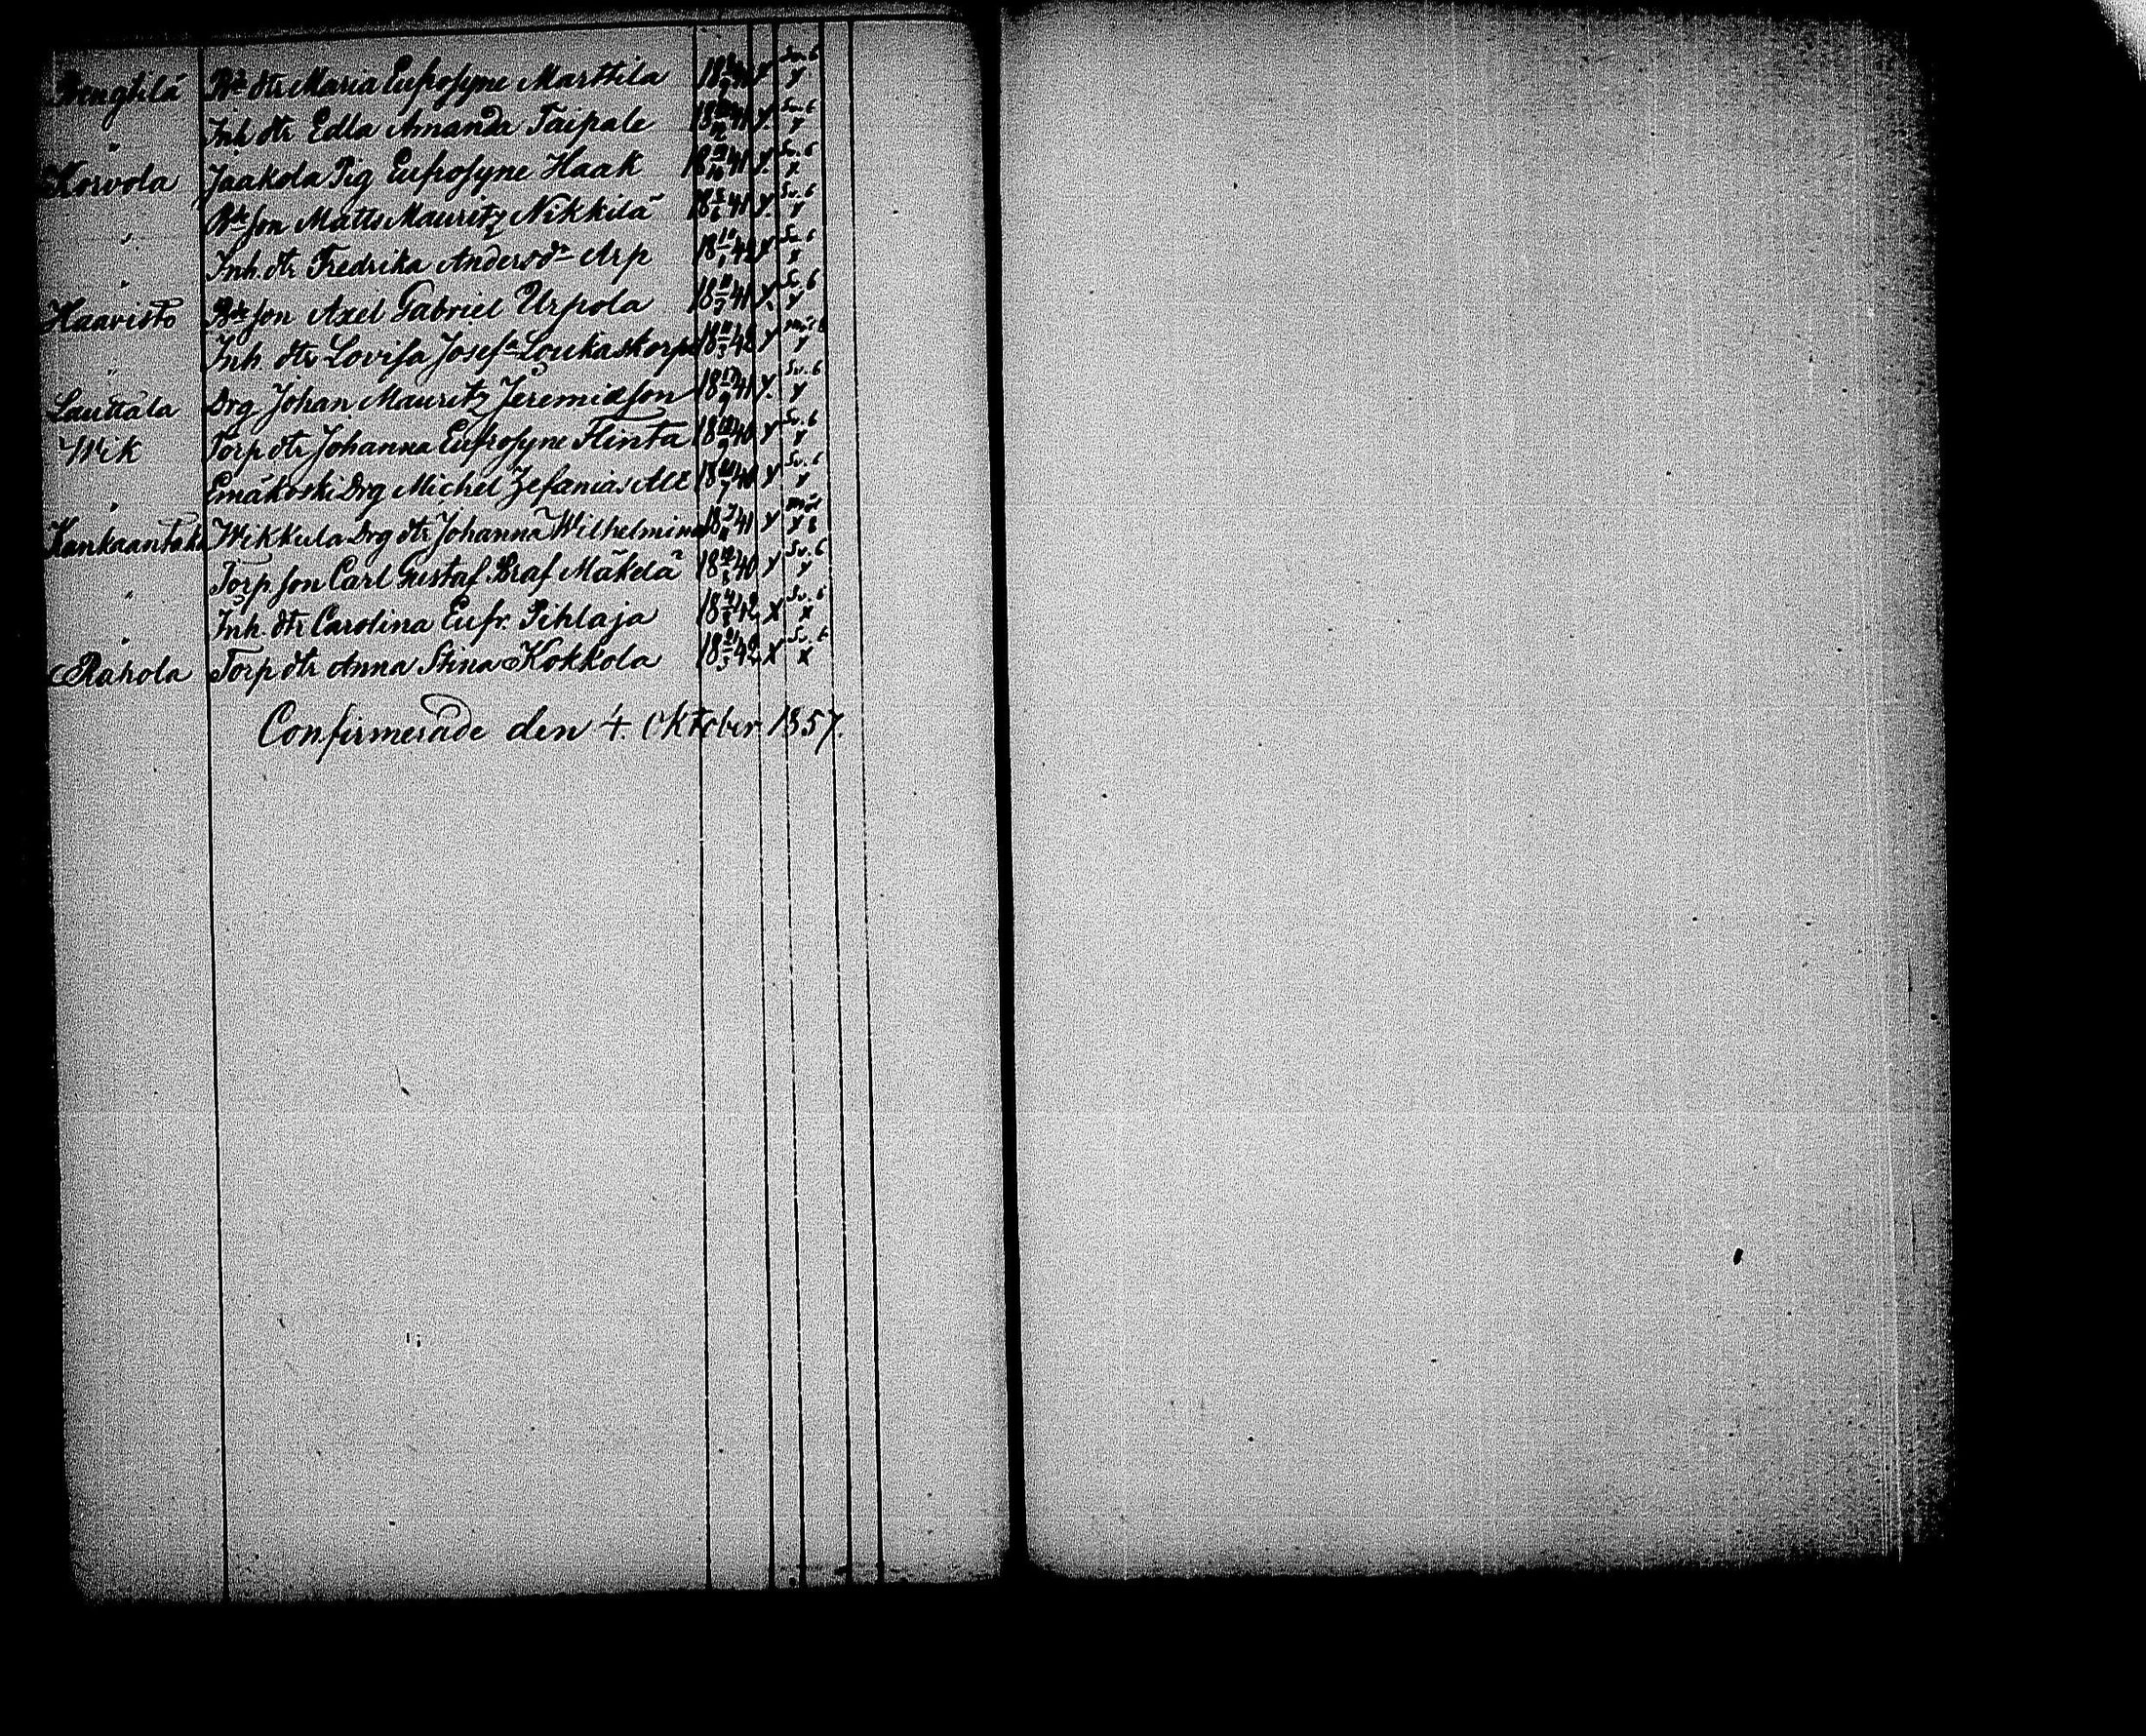 Bengtilä Bde dtr Maria Eufrosyne Marttila 18 41 x Sv. 6 x
" Inh. dtr Edla Amanda Taipale 18 41 x. Sv. 6 x
Korvola Jaakola Pig Eufrosyne Haak 18 41 x. Sv. 6 x
" Bde son Matts Mauritz Nikkilä 18 41 x. Sv. 6 x
" Inh. dtr Fredrika Andersdr Arp 18 42 x Sv. 6 x
Haavisto Bde son Axel Gabriel Urpola 18 41 x. Sv. 6 x
" Inh. dtr Lovisa Josefa Loukaskorpi 18 42 x x
Lauttala Drg Johan Mauritz Jeremiasson 18 41 x. Sv. 6 x
Wik Torp dtr Johanna Eufrosyne Flinta 18 40 x Sv. 6 x
" Emäkoski Drg Michel Zefanias 18 40 x Sv. 6 x
Wikkula Drg dtr Johanna Wilhelmina 18 41 x x
" Torp son Carl Gustaf Braf Mäkelä 18 40 x Sv. 6 x
" Inh. dtr Carolina Eufr. Pihlaja 18 42 x Sv. 6 x
Rahola Torp dtr Anna Stina Kokkola 18 42 x Sv. 6 x
Confirmerade den 4. Oktober 1857.